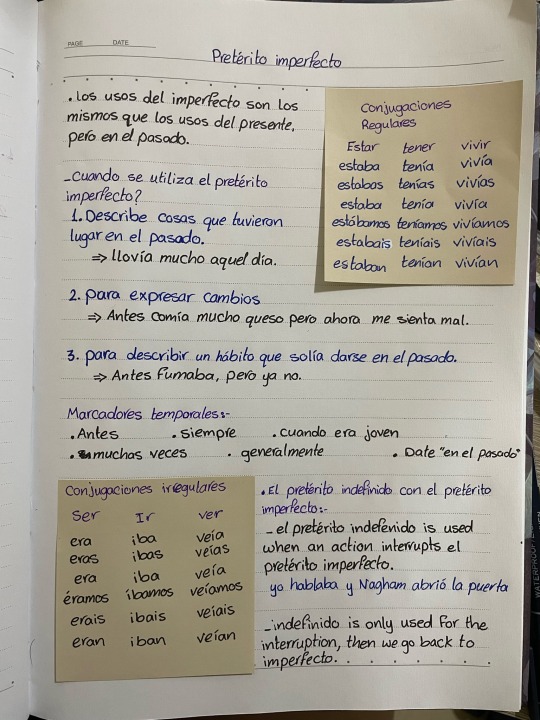 PAGE DATE
Pretérito imperfecto
. los usos del imperfecto son los
mismos que los usos del presente,
pero en el pasado.
Conjugaciones
Regulares
Estar tener vivir
estaba tenía vivía
estabas tenías vivías
estaba tenía vivía
estábamos teníamos vivíamos
estabais teníais vivíais
estaban tenían vivían
_Cuando se utiliza el pretérito
imperfecto?
1. Describe cosas que tuvieron
lugar en el pasado.
⇒ llovía mucho aquel día.
2. para expresar cambios
⇒ Antes comía mucho queso pero ahora me sienta mal.
3. para describir un hábito que solía darse en el pasado.
⇒ Antes fumaba, pero ya no.
Marcadores temporales:-
. Antes . siempre . cuando era joven
. muchas veces . generalmente . Date "en el pasado"
Conjugaciones irregulares
Ser Ir ver
era iba veía
eras ibas veías
era iba veía
éramos íbamos veíamos
erais ibais veíais
eran iban veían
. El pretérito indefinido con el pretérito
imperfecto:-
_ el pretérito indefenido is used
when an action interrupts el
pretérito imperfecto.
yo hablaba y Nagham abrió la puerta
_indefinido is only used for the
interruption, then we go back to
imperfecto.